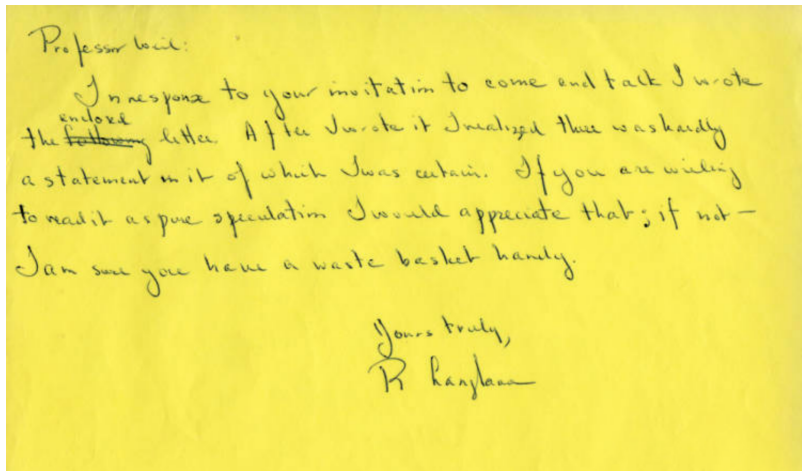 Professor Weil:
In response to your invitation to come and talk I wrote
enclosed
the following letter. After I wrote it I realized there was hardly
a statement in it of which I was certain. If you are willing
to read it as pure speculation I would appreciate that; if not —
I am sure you have a waste basket handy.
Yours truly,
R Langlands